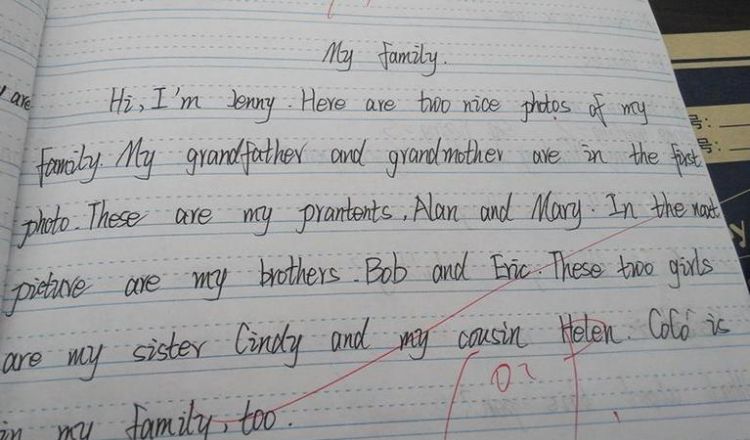 My family.
are
Hi, I'm Jenny. Here are two nice photos of my
family. My grandfather and grandmother are in the first
photo. These are my prantents, Alan and Mary. In the next
picture are my brothers. Bob and Eric. These two girls
are my sister Cindy and my cousin Helen. CoCo is
in my family, too.
号:
号: